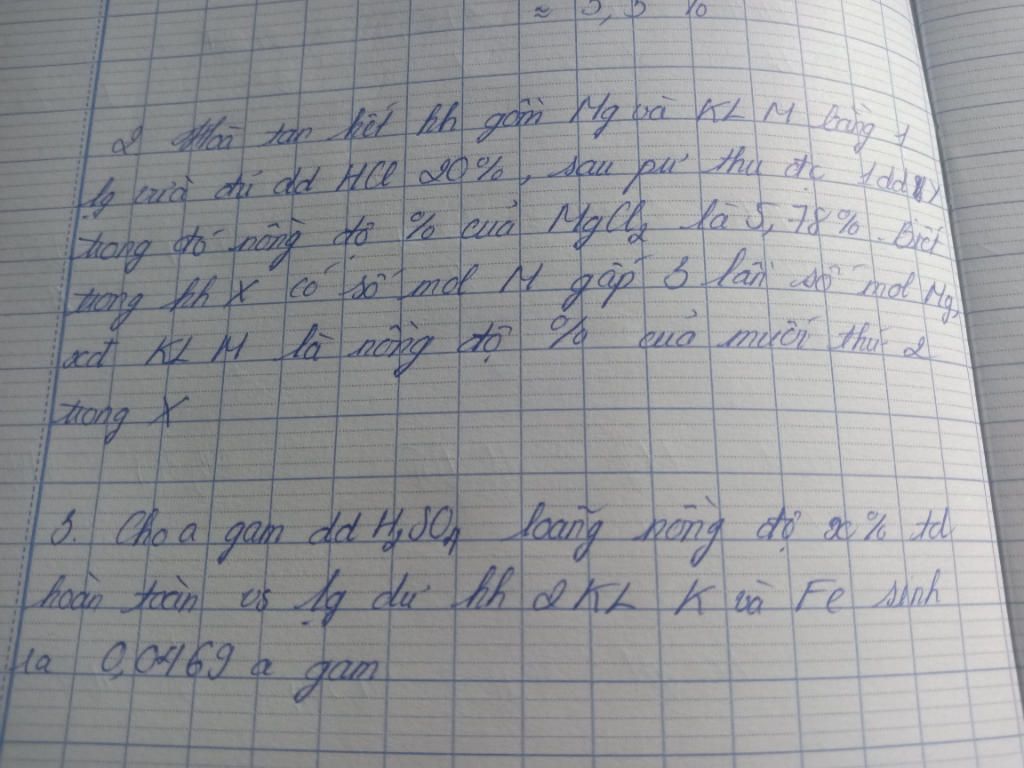 ≈ 5,5 %
2 Hoà tan hết hh gồm Mg và KL M bằng 1
lg vừa đủ dd HCl 20%, sau pứ thu đc 1 dd Y
trong đó nồng độ % của MgCl₂ là 5,78%. Biết
trong hh X có số mol M gấp 3 lần số mol Mg,
xđ KL M là nồng độ % của muối thứ 2
trong X
3. Cho a gam dd H₂SO₄ loãng nồng độ x% td
hoàn toàn vs lg dư hh 2 KL K và Fe sinh
ra 0,0469 a gam